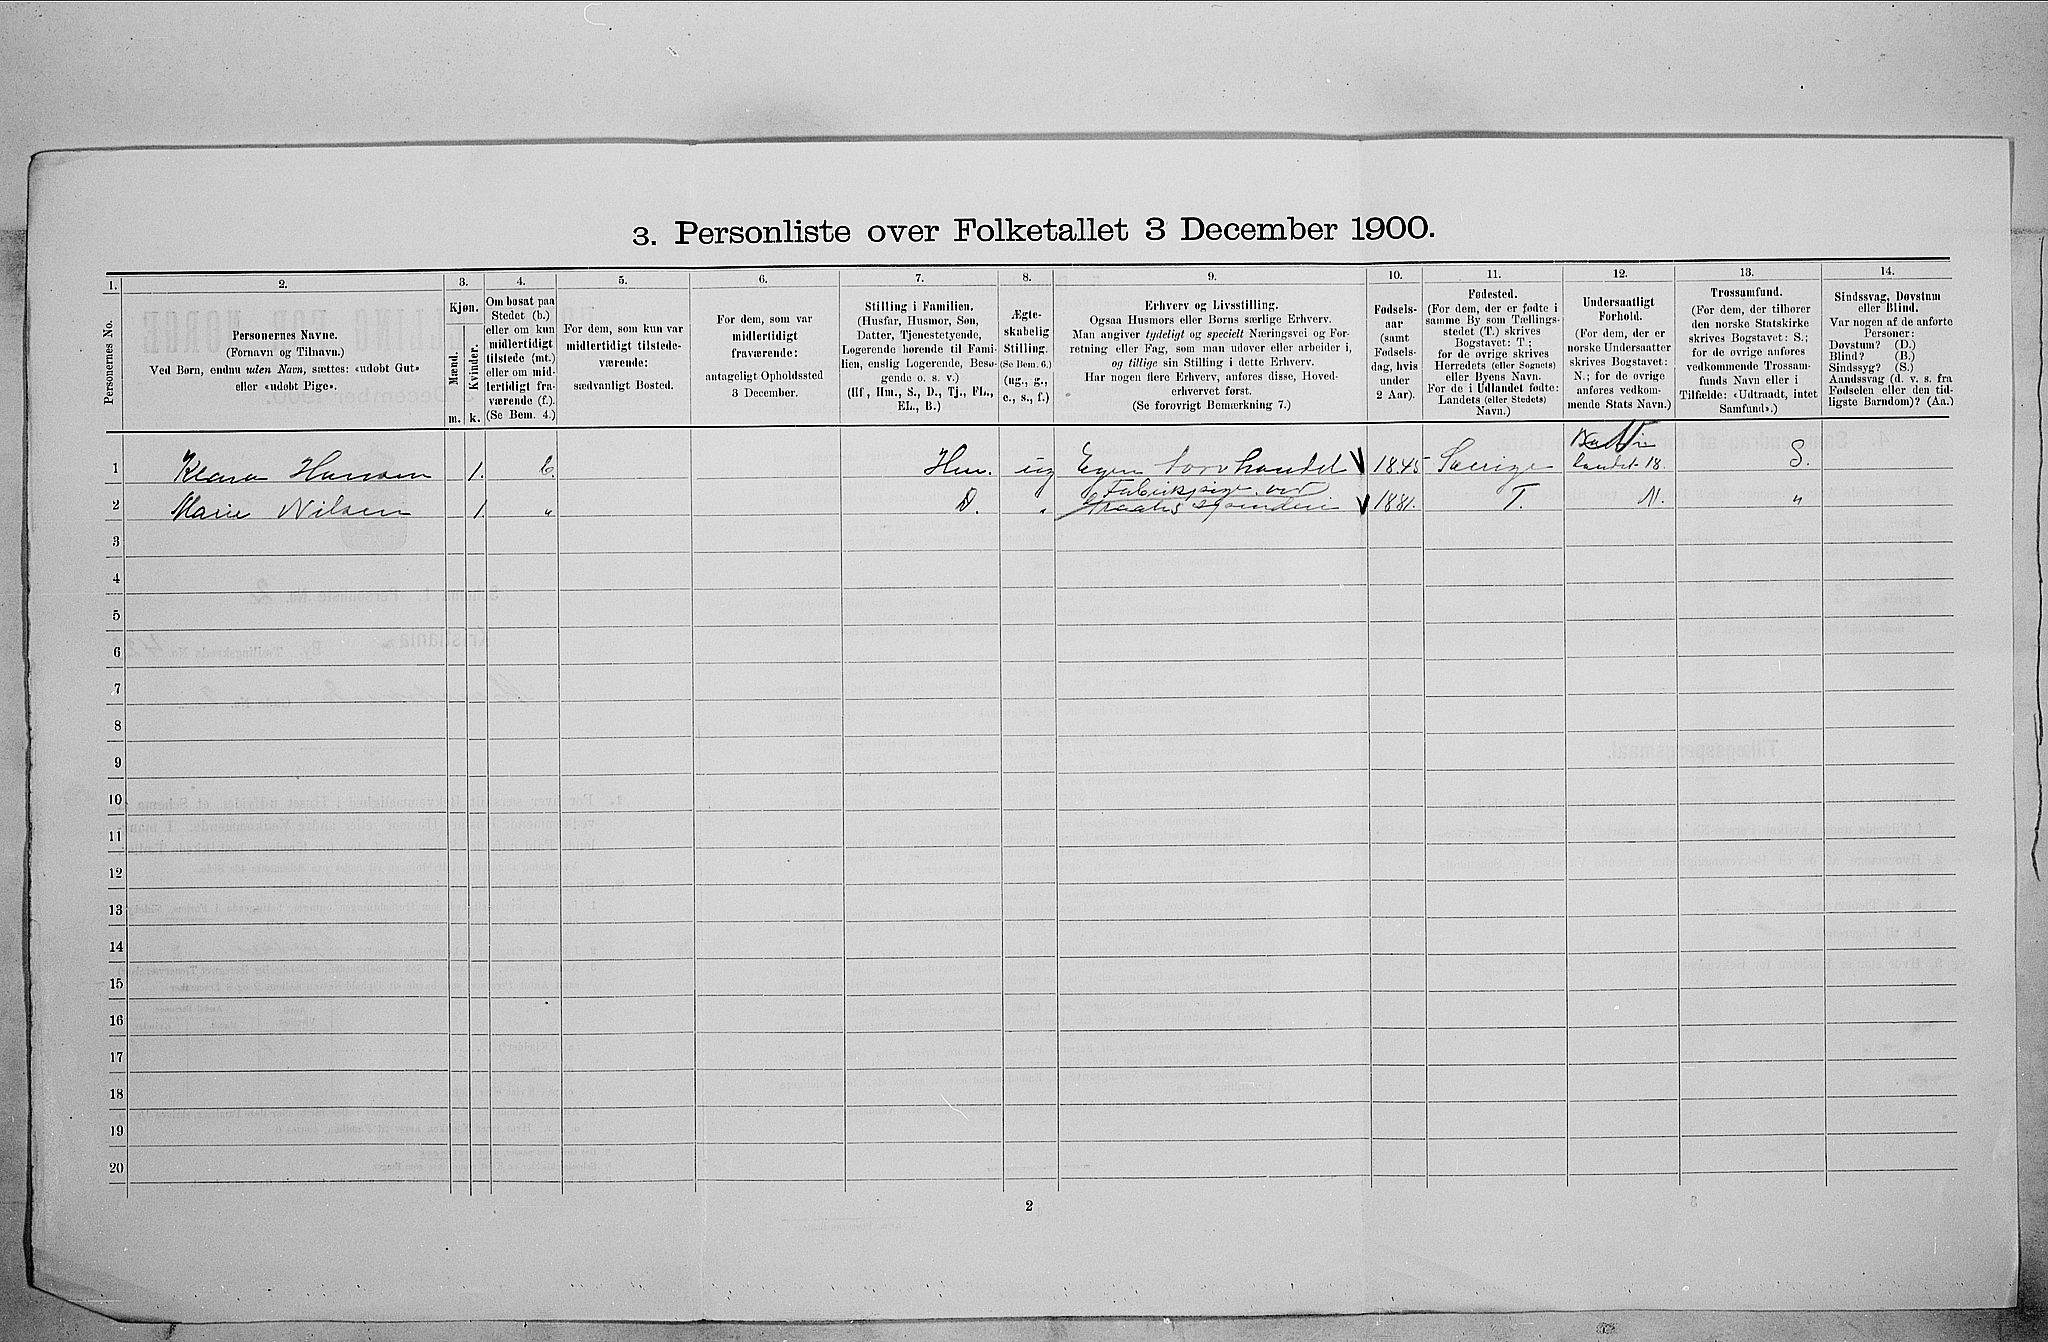 3. Personliste over Folketallet 3 December 1900.
1.
2.
3.
4.
5.
6.
7.
8.
9.
10.
11.
12.
13.
14.
Personernes No.
Personernes Navne.
(Fornavn og Tilnavn.)
Ved Børn, endnu uden Navn, sættes: «udøbt Gut»
eller «udøbt Pige».
Kjøn.
Mænd.
Kvinder.
m.
k.
Om bosat paa
Stedet (b.)
eller om kun
midlertidigt
tilstede (mt.)
eller om mid-
lertidigt fra-
værende (f.).
(Se Bem. 4.)
For dem, som kun var
midlertidigt tilstede-
værende:
sædvanligt Bosted.
For dem, som var
midlertidigt
fraværende:
antageligt Opholdssted
3 December.
Stilling i Familien.
(Husfar, Husmor, Søn,
Datter, Tjenestetyende,
Logerende hørende til Fami-
lien, enslig Logerende, Besø-
gende o. s. v.)
(Hf, Hm., S., D., Tj., FL.,
EL., B.)
Ægte-
skabelig
Stilling.
(Se Bem. 6.)
(ug., g.,
e., s., f.)
Erhverv og Livsstilling.
Ogsaa Husmors eller Børns særlige Erhverv.
Man angiver tydeligt og specielt Næringsvei og For-
retning eller Fag, som man udøver eller arbeider i,
og tillige sin Stilling i dette Erhverv.
Har nogen flere Erhverv, anføres disse, Hoved-
erhvervet først.
(Se forøvrigt Bemærkning 7.)
Fødsels-
aar
(samt
Fødsels-
dag, hvis
under
2 Aar).
Fødested.
(For dem, der er fødte i
samme By som Tællings-
stedet (T.) skrives
Bogstavet: T.;
for de øvrige skrives
Herredets (eller Sognets)
eller Byens Navn.
For de i Udlandet fødte:
Landets (eller Stedets)
Navn.)
Undersaatligt
Forhold.
(For dem, der er
norske Undersaatter
skrives Bogstavet:
N.; for de øvrige
anføres vedkom-
mende Stats Navn.)
Trossamfund.
(For dem, der tilhører
den norske Statskirke
skrives Bogstavet: S.;
for de øvrige anføres
vedkommende Trossam-
funds Navn eller i
Tilfælde: «Udtraadt, intet
Samfund».)
Sindssvag, Døvstum
eller Blind.
Var nogen af de anførte
Personer:
Døvstum? (D.)
Blind? (B.)
Sindssyg? (S.)
Aandssvag (d. v. s. fra
Fødselen eller den tid-
ligste Barndom)? (Aa.)
1 Klara Hansen 1. b. Hm. ug Egen torvhandel 1845 Sverige landet 18. N S.
2 Marie Nilsen 1 „ D. „ Fabrikpige ved Graahs spinderi 1881. T. N. „
3
4
5
6
7
8
9
10
11
12
13
14
15
16
17
18
19
20
2